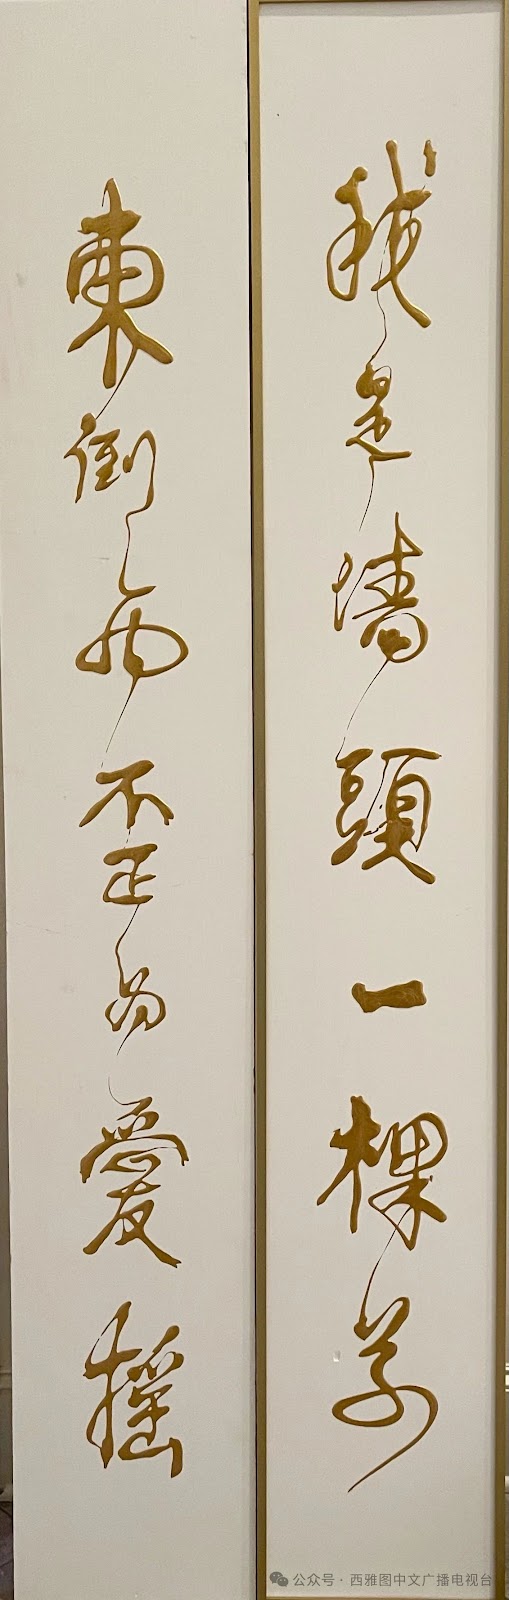 我是墙頭一棵草
東倒西歪为愛摇
公众号 · 西雅图中文广播电视台